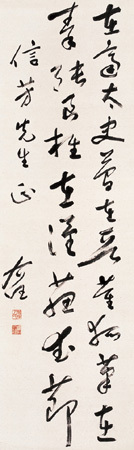 在齊太史簡在晉董狐筆在
秦張良椎在漢蘇武節
信芳先生正
右任